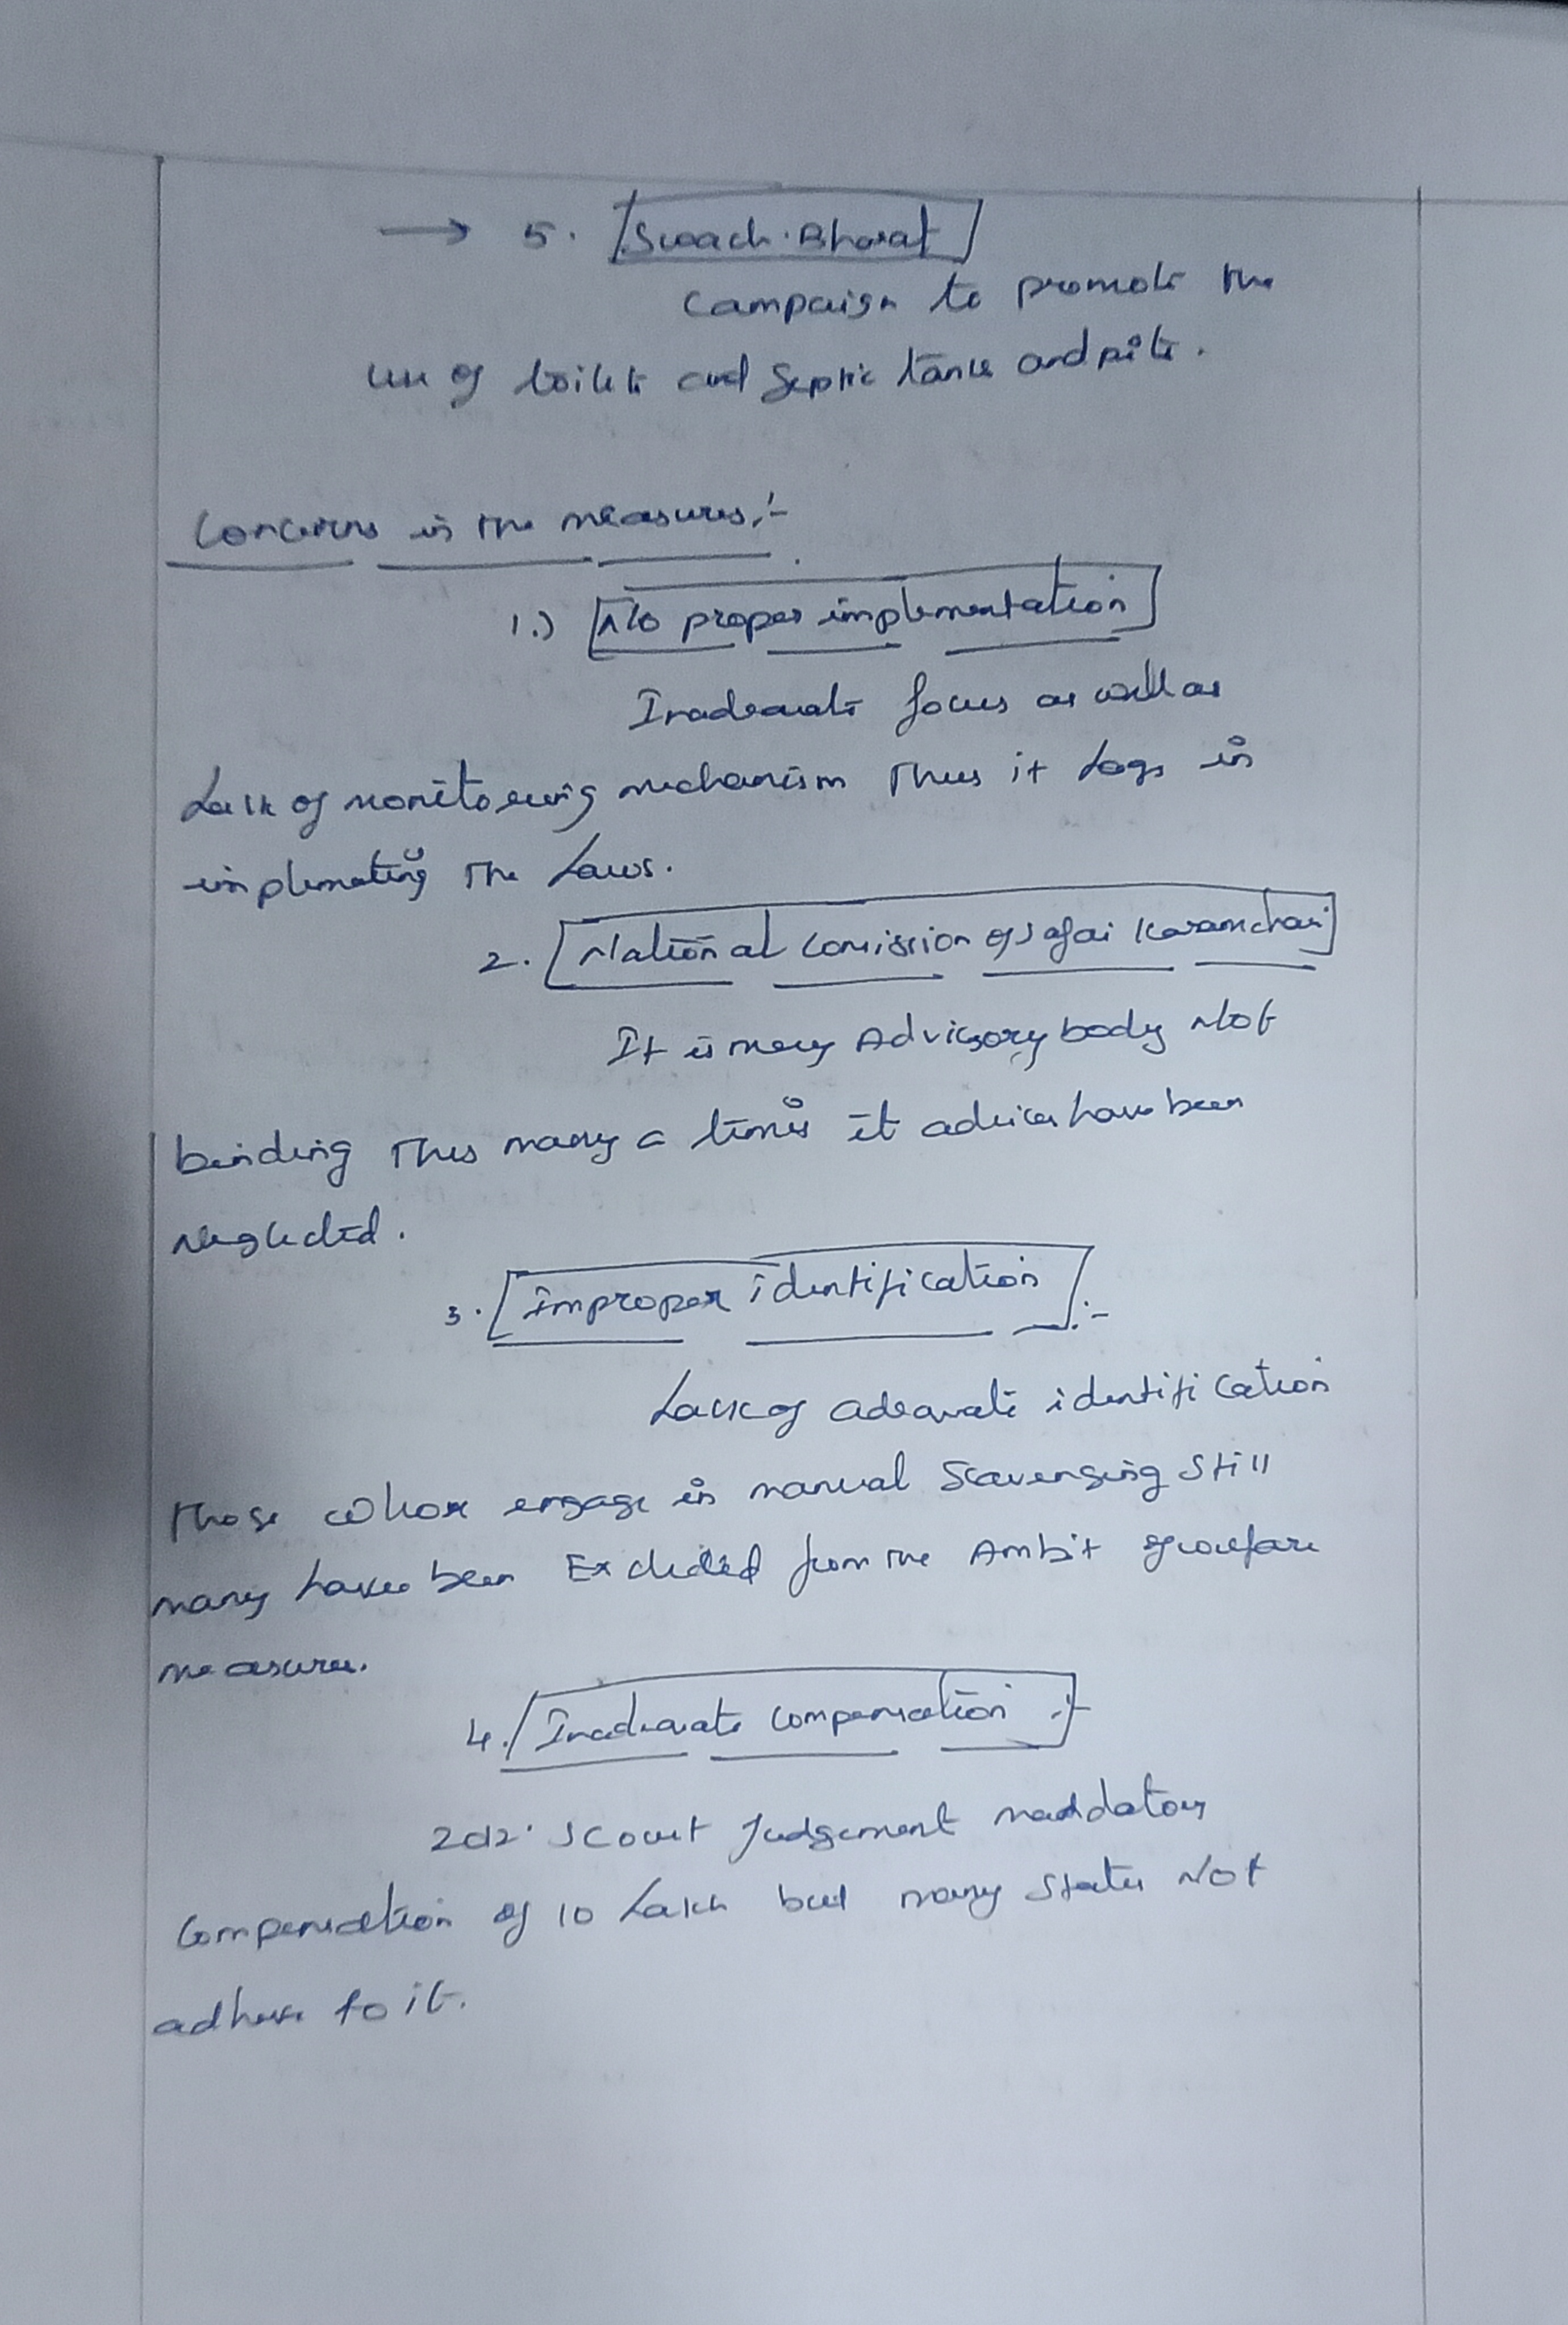 → 5. Swach. Bharat
Campaign to promote the
use of toilets and Septic tanks and pits.
Concerns in the measures:-
1.) No proper implementation
Inadequate focus as well as
Lack of monitoring mechanism Thus it Lags in
implemating the Laws.
2. National Comission of Safai Karamchari
It is mery Advisory body Not
binding This many a times it advices have been
neglected.
3. Improper identification :-
Lack of adequate identification
those whose engage in manual Scavenging Still
many have been Excluded from the Ambit of welfare
measures.
4. Inadequate Compensation :-
Scourt Judgement maddatory
Compensation of 10 Lakh but many States Not
adhere to it.